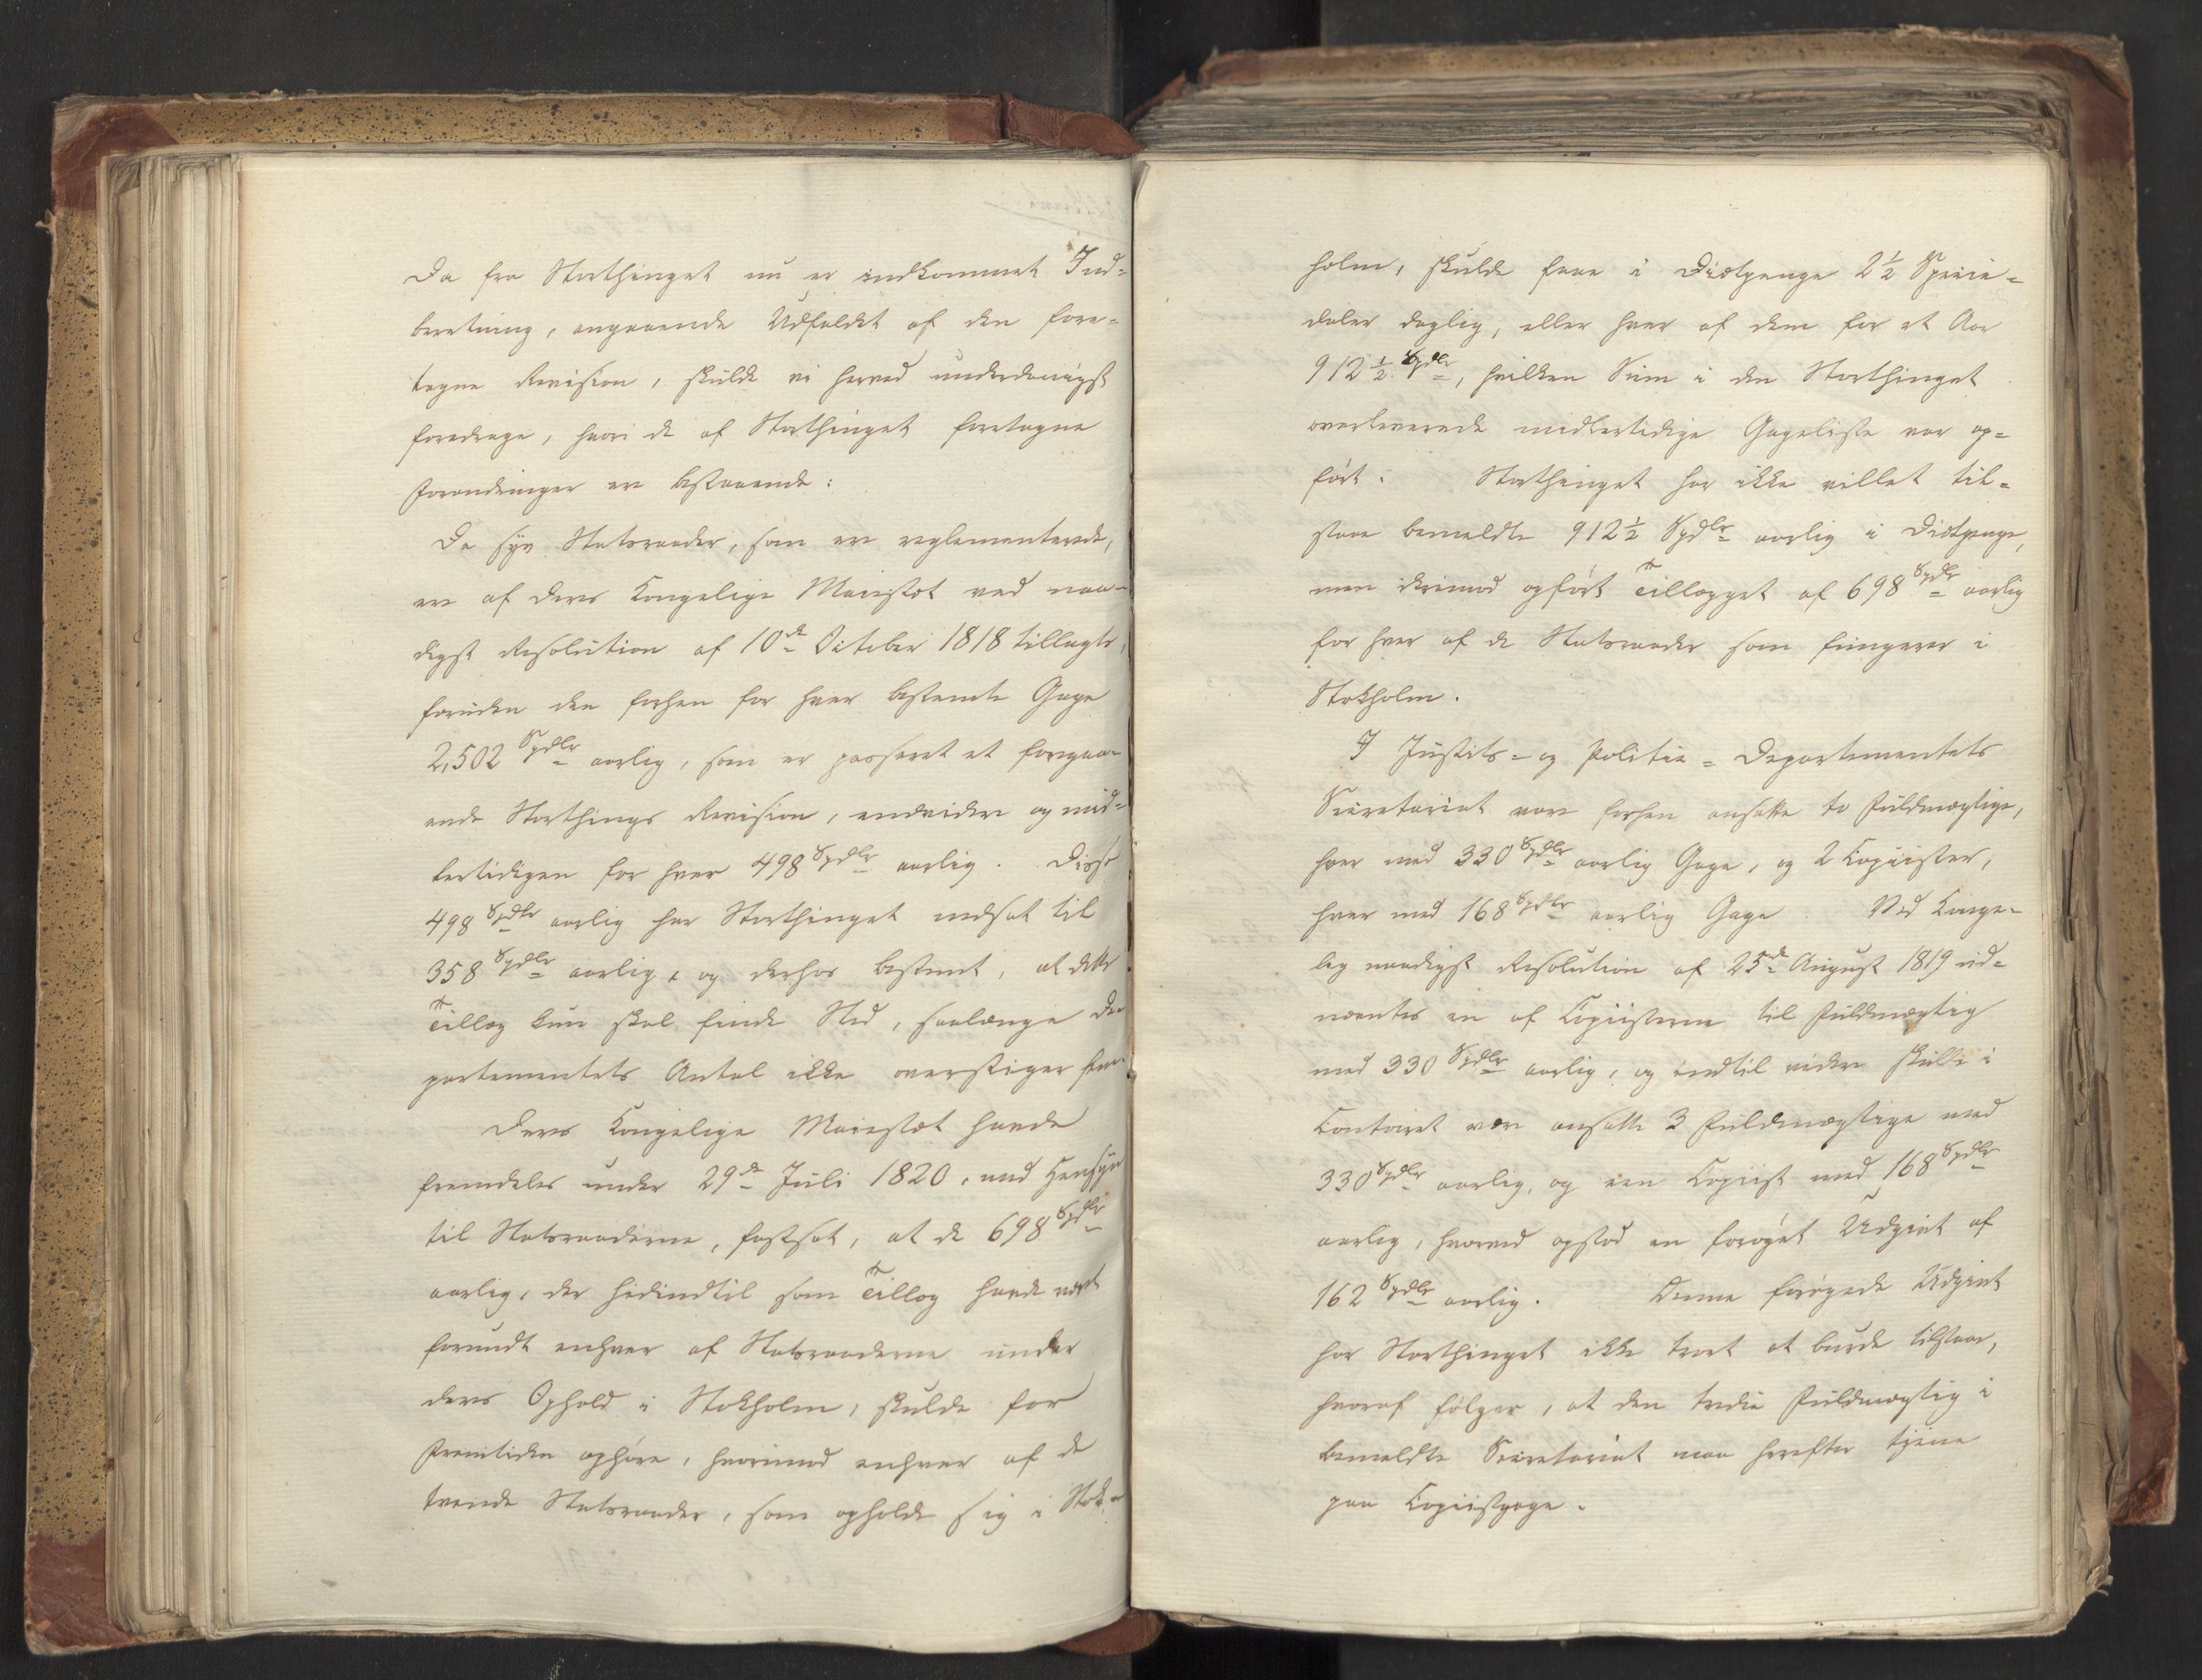 Da fra Storthinget nu er indkommet Ind-
beretning, angaaende Udfaldet af den fore-
tagne Revision, skulde vi herved underdanigst
foredrage, hvori de af Storthinget foretagne
Forandringer ere bestaaende:
De syv Statsraader, som ere reglementerede,
ere af Deres Kongelige Majestæt ved naa-
digst Resolution af 10de October 1818 tillagte,
foruden den forhen for hver bestemte Gage
2,502 Spdlr aarlig, som er passeret et foregaa-
ende Storthings Revision, endvidere og mid-
lertidigen for hver 498 Spdlr aarlig. Disse
498 Spdlr aarlig har Storthinget nedsat til
358 Spdlr aarlig, og derhos bestemt, at dette
Tillæg kun skal finde Sted, saalænge De-
partementets Antal ikke overstiger fem.
Deres Kongelige Majestæt havde
fremdeles under 29de Juli 1820, med Hensyn
til Statsraaderne, fastsat, at de 698 Spdlr
aarlig, der hidindtil som Tillæg havde været
forundt enhver af Statsraaderne under
deres Ophold i Stokholm, skulde for
Fremtiden ophøre, hvorimod enhver af de
tvende Statsraader, som opholde sig i Stok-
holm, skulde faae i Diætpenge 2 1/2 Specie-
daler daglig, eller hver af dem for et Aar
912 1/2 Spdlr, hvilken Sum i den Storthinget
overleverede midlertidige Gageliste var op-
ført. Storthinget har ikke villet til-
staae bemeldte 912 1/2 Spdlr aarlig i Diætpenge,
men derimod opført Tillægget af 698 Spdlr aarlig
for hver af de Statsraader som fungerer i
Stokholm.
I Justits- og Politie-Departementets
Secretariat vare forhen ansatte to Fuldmægtige,
hver med 330 Spdlr aarlig Gage, og 2 Copiister,
hver med 168 Spdlr aarlig Gage. Ved Konge-
lig naadigst Resolution af 25de August 1819 ud-
nævntes en af Copiisterne til Fuldmægtig
med 330 Spdlr aarlig, og indtil videre skulle i
Contoiret være ansatte 3 Fuldmægtige med
330 Spdlr aarlig, og een Copiist med 168 Spdlr
aarlig, hvorved opstod en forøget Udgivt af
162 Spdlr aarlig. Denne forøgede Udgivt
har Storthinget ikke troet at burde tilstaae,
hvoraf følger, at den tredie Fuldmægtig i
bemeldte Secretariat maa herefter tjene
paa Copiistgage.